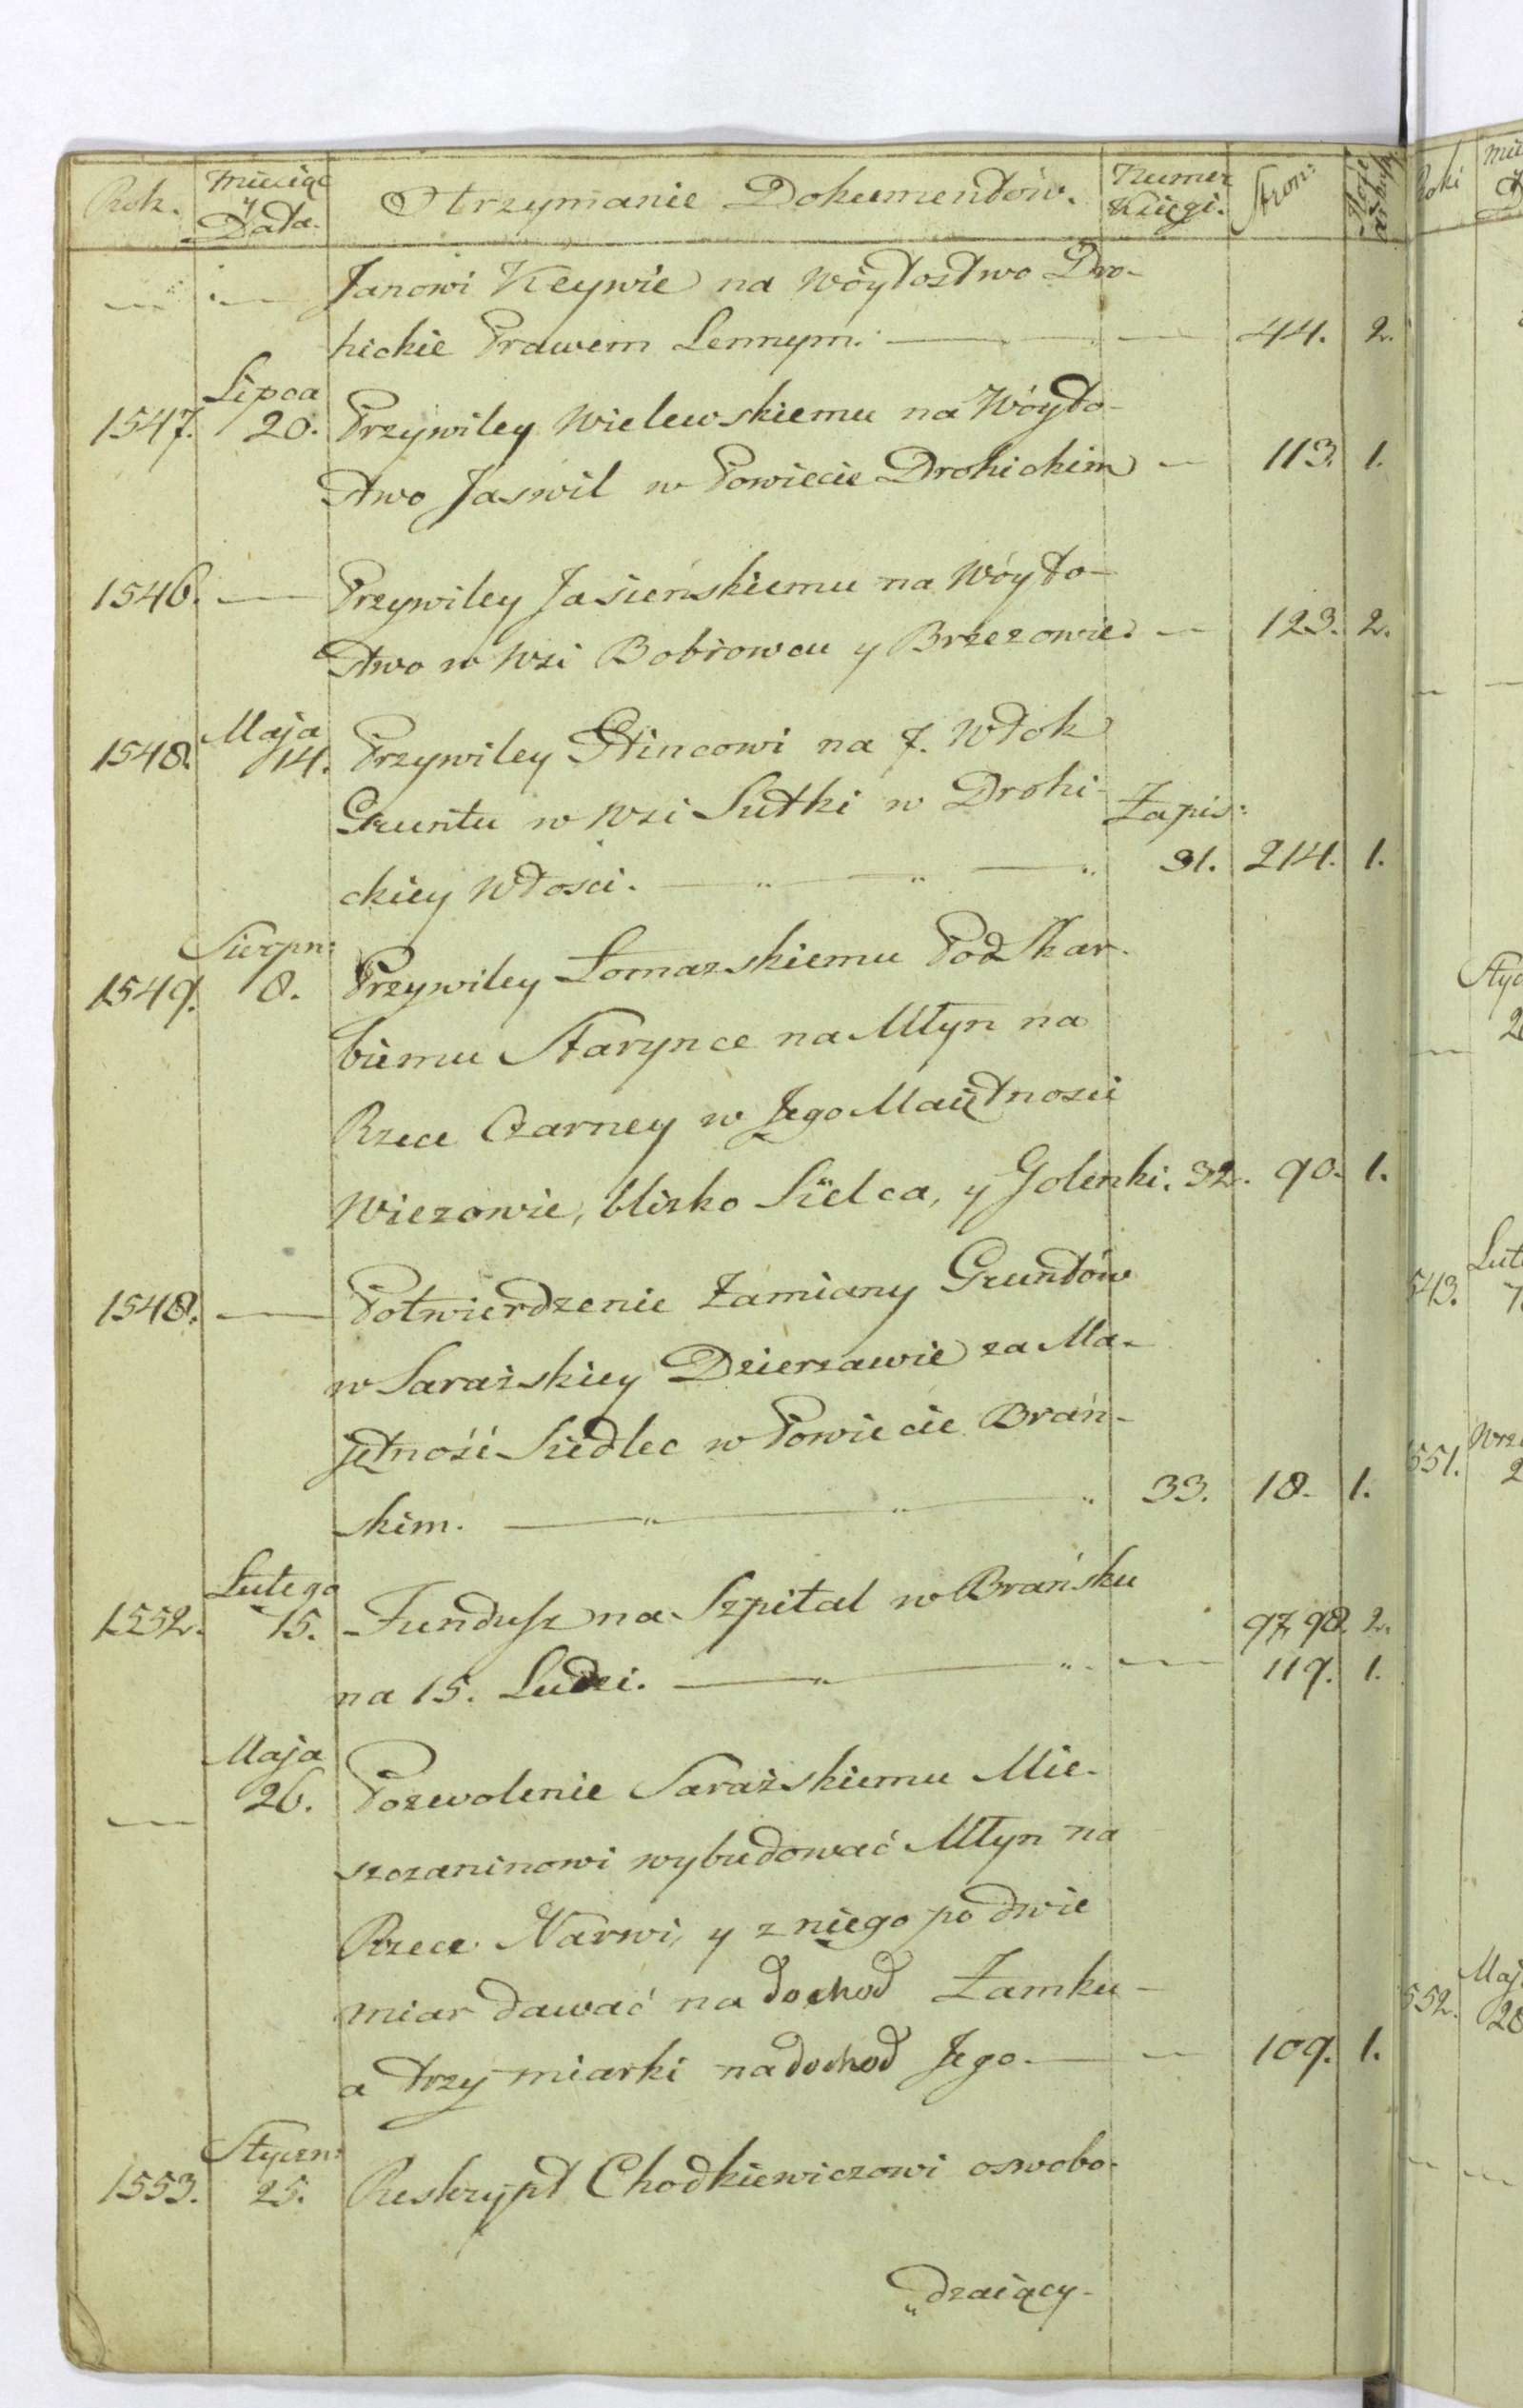 Rok. Miesiąc y Data. Otrzymanie Dokumentów. Numer Księgi. Stron:
Janowi Keywie na Wóytostwo Dro-
hickie Prawem Lennym. 44. 2.
Lipca
1547. 20. Przywiley Wielewskiemu na Wóyto-
stwo Jaswil w Powiecie Drohickim 113. 1.
1546. Przywiley Jasieńskiemu na Wóyto-
stwo w Wsi Bobrowcu y Brzezowie. 123. 2.
Maja
1548. 14. Przywiley Glincowi na 7. Włok
Gruntu w Wsi Sutki w Drohi- Zapis:
ckiey Włosci. 31. 214. 1.
Sierpn:
1549. 8. Przywiley Łomazskiemu Podskar-
biemu Starynce na Młyn na
Rzece Czarney w Jego Maiętnosci
Wiezowie, blisko Sielca, y Golenki. 32. 90. 1.
1548. Potwierdzenie Zamiany Gruntów
w Saraźskiey Dzierzawie za Ma-
jętność Siedlec w Powiecie Brań-
skim. 33. 18. 1.
Lutego
1552. 15. Fundusz na Szpital w Brańsku 97, 98. 2.
na 15. Ludzi. 119. 1.
Maja
26. Pozwolenie Saraźskiemu Mie-
szczaninowi wybudować Młyn na
Rzece Narwi, y z niego po dwie
miar dawać na dochod Zamku
a trzy miarki na dochod Jego. 109. 1.
Styczn:
1553. 25. Reskrypt Chodkiewiczowi oswobo-
„dzaiący